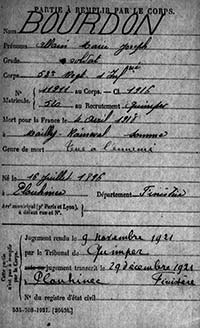 PARTIE À REMPLIR PAR LE CORPS.
BOURDON
Nom
Prénoms Alain Marie Joseph
Grade soldat
Corps 52e Regt d'Infie
N° 11211 au Corps. — Cl. 1916
Matricule. 510 au Recrutement Quimper
Mort pour la France le 4 avril 1918
à Mailly-Raineval Somme
Genre de mort Tué à l'ennemi
Né le 16 juillet 1896
à Plouhinec Département Finistère
Arr¹ municipal (pr Paris et Lyon),
à défaut rue et N°.
Jugement rendu le 9 novembre 1921
par le Tribunal de Quimper
jugement transcrit le 29 décembre 1921
à Plouhinec Finistère
N° du registre d'état civil
531-708-1921. [26434.]